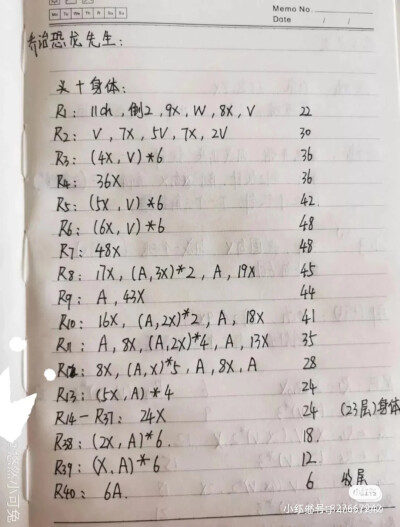 Memo No.
Mo Tu We Th Fr Sa Su
Date / /
乔治恐龙先生:
头+身体:
R1: 11ch, 倒2, 9X, W, 8X, V 22
R2: V, 7X, 5V, 7X, 2V 30
R3: (4X, V)*6 36
R4: 36X 36
R5: (5X, V)*6 42
R6: (6X, V)*6 48
R7: 48X 48
R8: 17X, (A,3X)*2, A, 19X 45
R9: A, 43X 44
R10: 16X, (A,2X)*2, A, 18X 41
R11: A, 8X, (A,2X)*4, A, 13X 35
R12: 8X, (A,X)*5, A, 8X, A 28
R13: (5X, A)*4 24
R14-R37: 24X 24 (23层)身体
R38: (2X, A)*6 18
R39: (X, A)*6 12
R40: 6A 6 收尾
小红书
小红书号:27667242